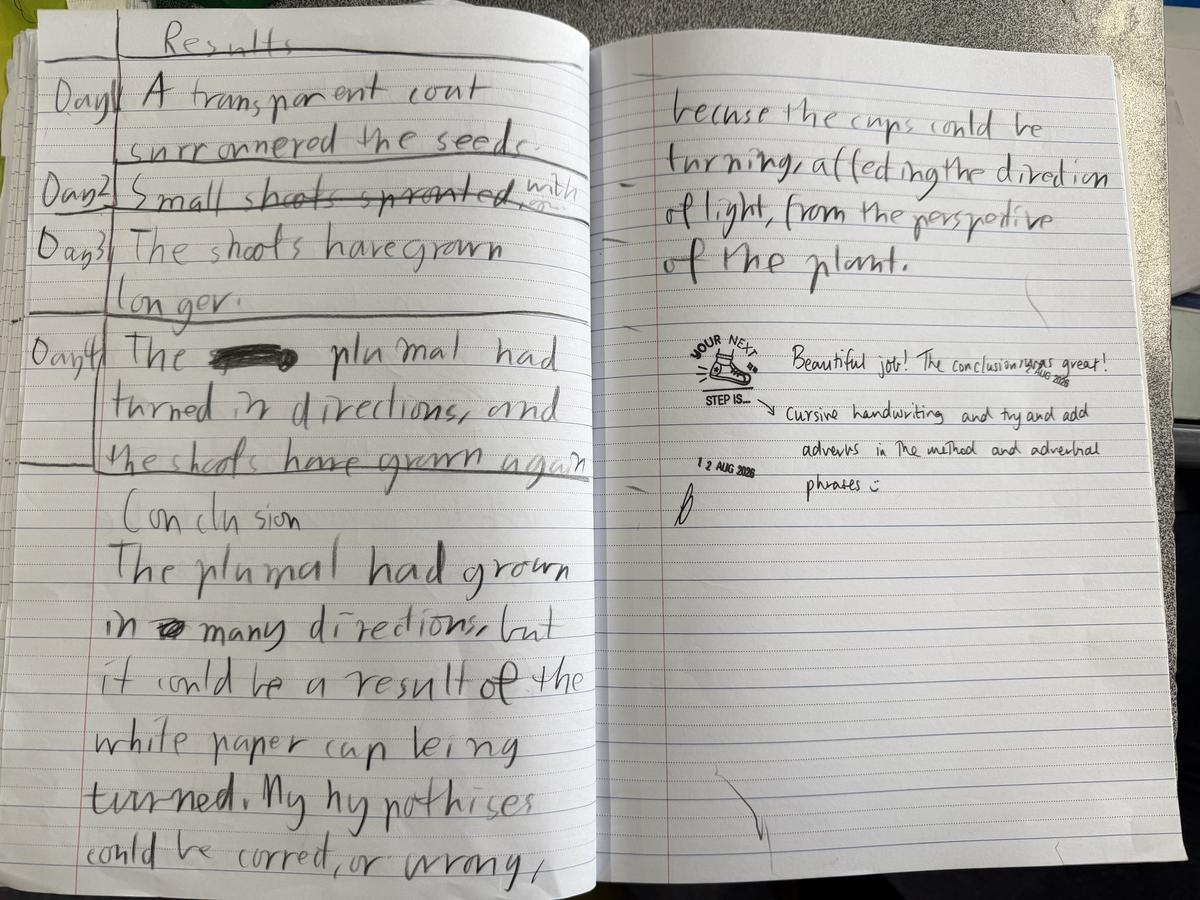 Results
Day1 A transparent cout
surronnered the seeds.
Day2 Small shoots sprouted, with
Day3 The shoots have grown
longer.
Day4 The plumal had
turned in directions, and
the shoots have grown again
Conclusion
The plumal had grown
in many directions, but
it could be a result of the
white paper cup being
turned. My hypothises
could be correct, or wrong,
becuse the cups could be
turning, affecting the direction
of light, from the perspective
of the plant.
YOUR NEXT
STEP IS...
Beautiful job! The conclusion was great!
AUG 2026
Cursive handwriting and try and add
adverbs in the method and adverbial
phrases
12 AUG 2026